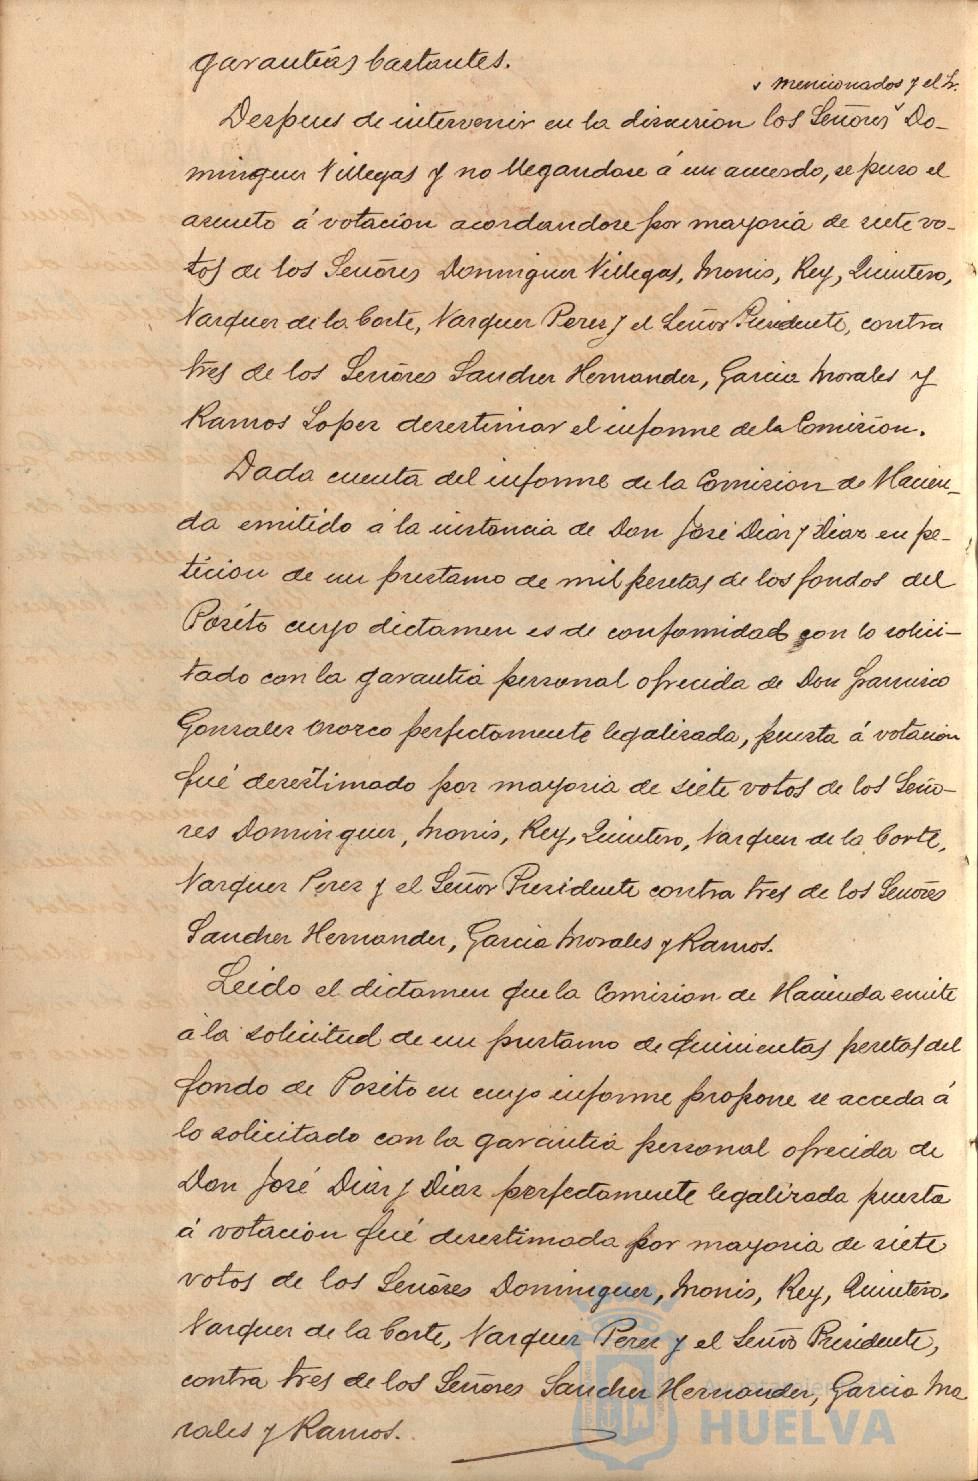 garantías bastantes.
v mencionados y el Sr.
Despues de intervenir en la discusion los Señores v Do-
minguez Villegas y no llegandose á un acuerdo, se puso el
asunto á votación acordandose por mayoría de siete vo-
tos de los Señores Dominguez Villegas, Monis, Rey, Quintero,
Vazquez de la Corte, Vazquez Perez y el Señor Presidente, contra
tres de los Señores Sanchez Hernandez, Garcia Morales y
Ramos Lopez desestimar el informe de la Comision.
Dada cuenta del informe de la Comision de Hacien-
da emitido á la instancia de Don José Diaz y Diaz en pe-
ticion de un prestamo de mil pesetas de los fondos del
Posito cuyo dictamen es de conformidad con lo solici-
tado con la garantia personal ofrecida de Don Francisco
Gonzalez Orozco perfectamente legalizada, puesta á votacion
fué desestimado por mayoria de siete votos de los Seño-
res Dominguez, Monis, Rey, Quintero, Vazquez de la Corte,
Vazquez Perez y el Señor Presidente contra tres de los Señores
Sanchez Hernandez, Garcia Morales y Ramos.
Leido el dictamen que la Comision de Hacienda emite
á la solicitud de un prestamo de quinientas pesetas del
fondo de Posito en cuyo informe propone se acceda á
lo solicitado con la garantia personal ofrecida de
Don José Diaz y Diaz perfectamente legalizada puesta
á votacion fué desestimada por mayoria de siete
votos de los Señores Dominguez, Monis, Rey, Quintero,
Vazquez de la Corte, Vazquez Perez y el Señor Presidente,
contra tres de los Señores Sanchez Hernandez, Garcia Mo
rales y Ramos.
Ayuntamiento de
HUELVA